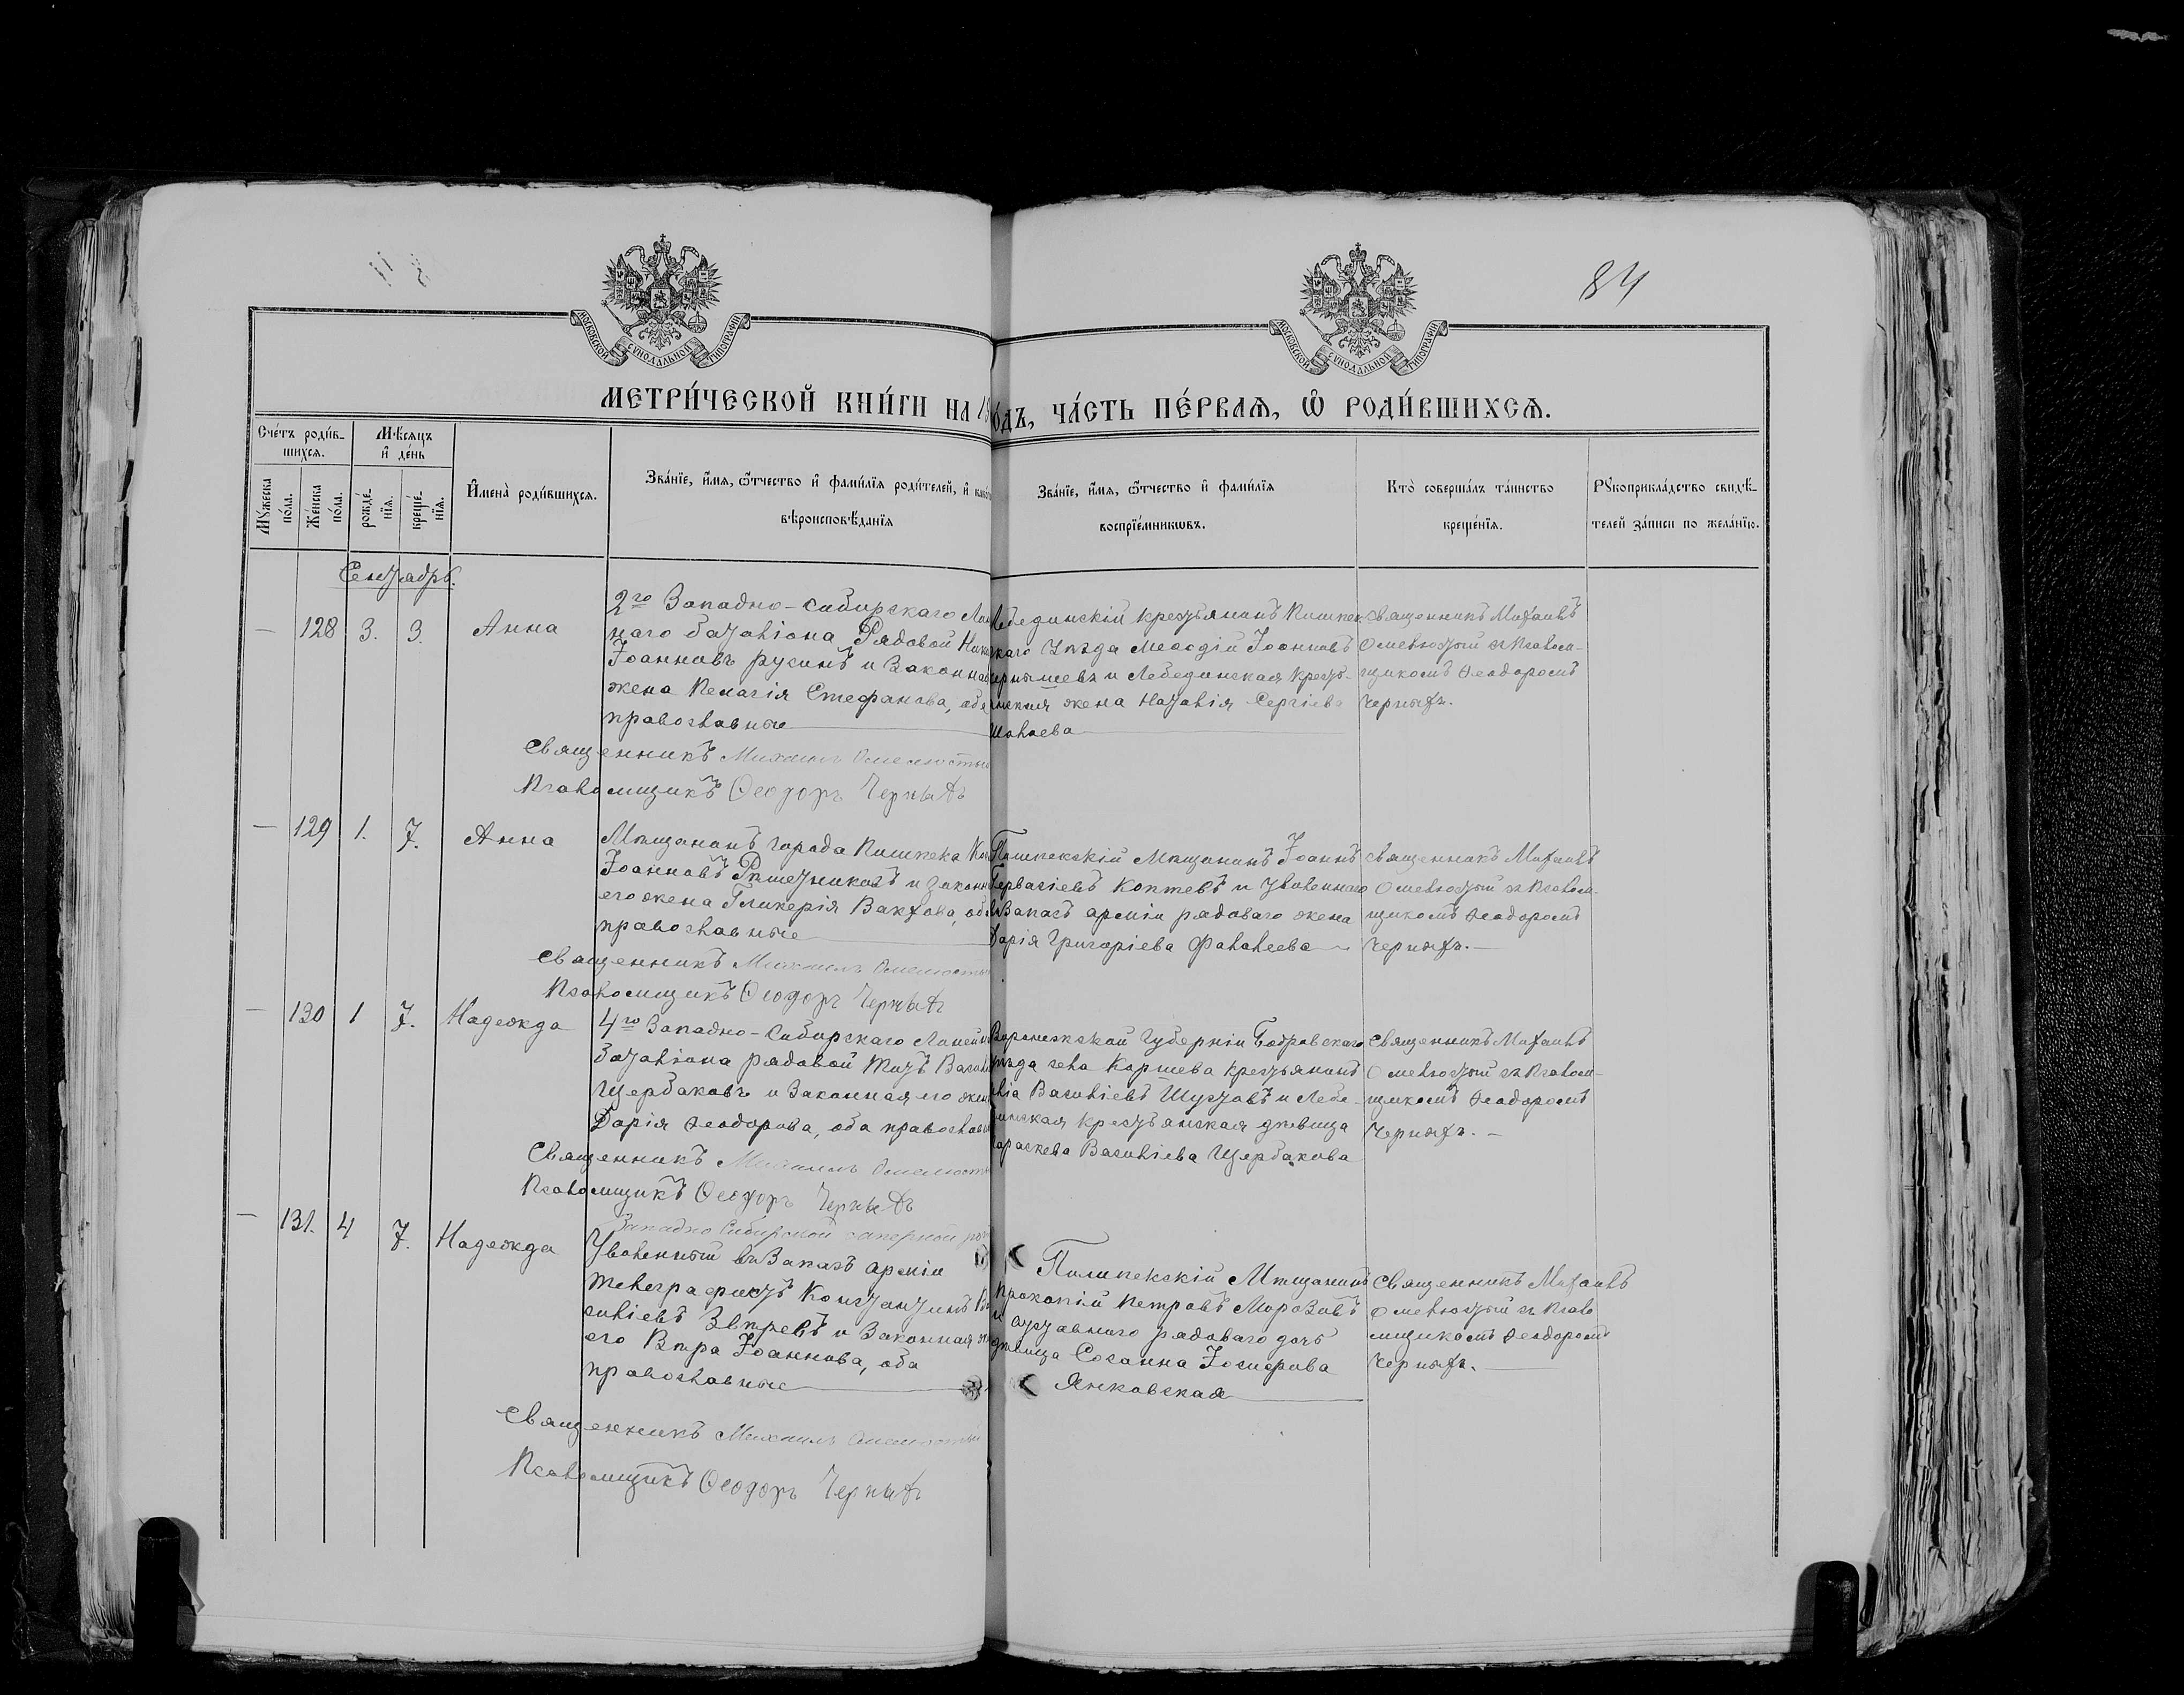 84
МОСКОВСКОЙ СУНОДАЛЬНОЙ ТИПОГРАФІИ
МОСКОВСКОЙ СУНОДАЛЬНОЙ ТИПОГРАФІИ
МЕТРИ́ЧЕСКОЙ КНИ́ГИ НА
О́ДЪ, ЧА́СТЬ ПЕ́РВАѦ, Ѡ҆ РОДИ́ВШИХСѦ.
Сче́тъ роди́в-
шихсѧ.
Мѣ́сѧцъ
и҆ де́нь
Мꙋ́жеска
по́ла.
Же́нска
по́ла.
рожде́-
нїѧ.
креще́-
нїѧ.
И҆мена̀ роди́вшихсѧ.
Зва́нїе, и҆́мѧ, ѻ҆́тчество и҆ фами́лїѧ роди́телей, и҆
вѣроисповѣ́данїѧ
Зва́нїе, и҆́мѧ, ѻ҆́тчество и҆ фами́лїѧ
воспрїе́мникѡвъ.
Кто̀ соверша́лъ та́инство
креще́нїѧ.
Рꙋкоприкла́дство свидѣ́-
телей за́писи по жела́нїю.
Сентябрь.
— 128 3. 3. Анна
2го Западно-Сибирскаго
наго баталіона Рядовой
Іоанновъ русинъ и Законная
жена Пелагія Стефанова, оба
православные
Лебединскій крестьянинъ Пишпек-
скаго Уѣзда Меѳодій Іоанновъ
и Лебединская кресть-
янская жена Наталія Сергіева
Священникъ Михаилъ
Омелюстый съ Псалом-
щикомъ Ѳеодоромъ
Черныхъ.
Священникъ Михаилъ Омелюстый
Псаломщикъ Ѳеодоръ Черныхъ
— 129 1. 7. Анна
Мѣщанинъ города Пишпека
Іоанновъ Рѣшетниковъ и законная
его жена Гликерія Вакхова, оба
православные
Пишпекскій Мѣщанинъ Іоаннъ
Коптевъ и уволеннаго
въ Запасъ арміи рядоваго жена
Дарія Григоріева Фалалеева
Священникъ Михаилъ
Омелюстый съ Псалом-
щикомъ Ѳеодоромъ
Черныхъ.—
Священникъ Михаилъ Омелюстый
Псаломщикъ Ѳеодоръ Черныхъ
— 130 1 7. Надежда
4го Западно-Сибирскаго Линейнаго
Баталіона рядовой Титъ
Щербаковъ и Законная его жена
Дарія Ѳеодорова, оба православные
Воронежской Губерніи Бобровскаго
уѣзда села Коршева крестьянинъ
Илія Василіевъ Шустовъ и Лебе-
динская крестьянская дѣвица
Параскева Василіева Щербакова
Священникъ Михаилъ
Омелюстый съ Псалом-
щикомъ Ѳеодоромъ
Черныхъ.—
Священникъ Михаилъ Омелюстый
Псаломщикъ Ѳеодоръ Черныхъ
— 131. 4 7. Надежда
Западно Сибирской саперной
Уволенный въ Запасъ арміи
Телеграфистъ Константинъ Ва-
силіевъ Звѣревъ и Законная
его Вѣра Іоаннова, оба
православные
Пишпекскій Мѣщанинъ
Прокопій Петровъ Морозовъ
и отставнаго рядоваго дочь
дѣвица Сосанна Іосифова
Янковская
Священникъ Михаилъ
Омелюстый съ Псало
мщикомъ Ѳеодоромъ
Черныхъ.—
Священникъ Михаилъ Омелюстый
Псаломщикъ Ѳеодоръ Черныхъ